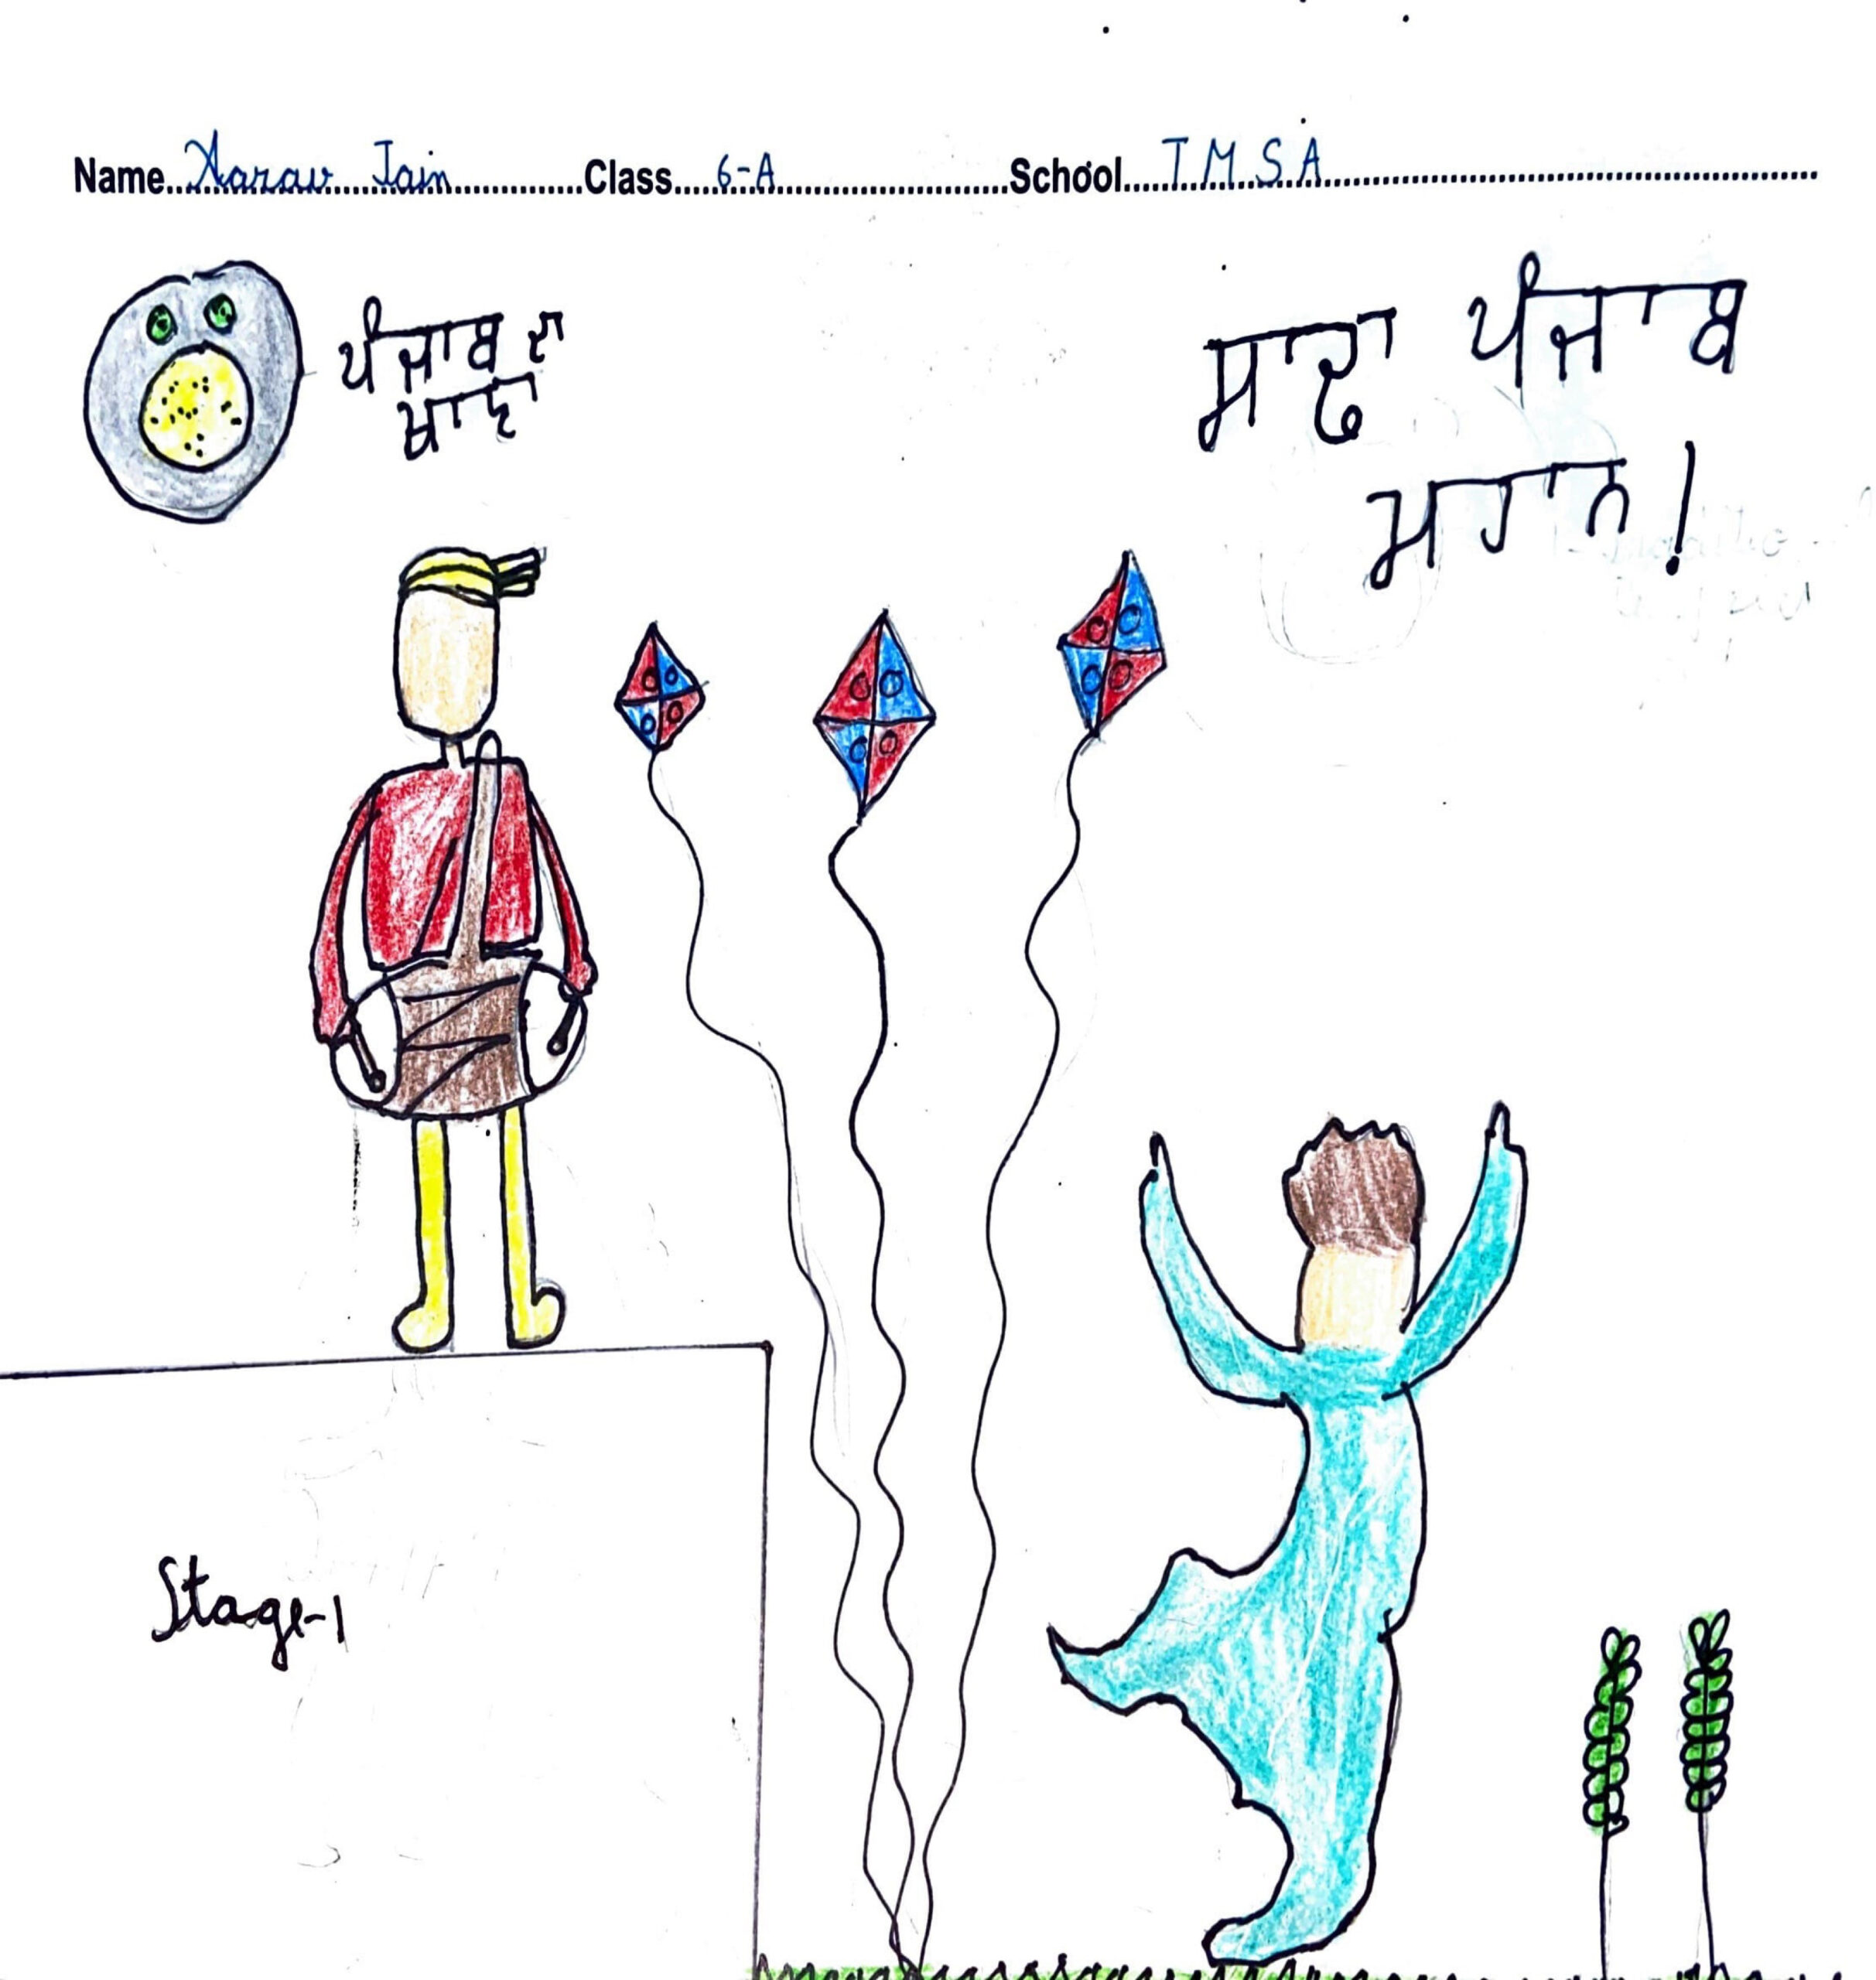 Name Aarav Jain Class 6-A School T M S A
ਪੰਜਾਬ ਦਾ
ਖਾਣਾ
ਸਾਢਾ ਪੰਜਾਬ
ਮਹਾਨ !
Stage-1